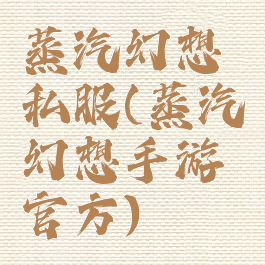 蒸汽幻想
私服(蒸汽
幻想手游
官方)